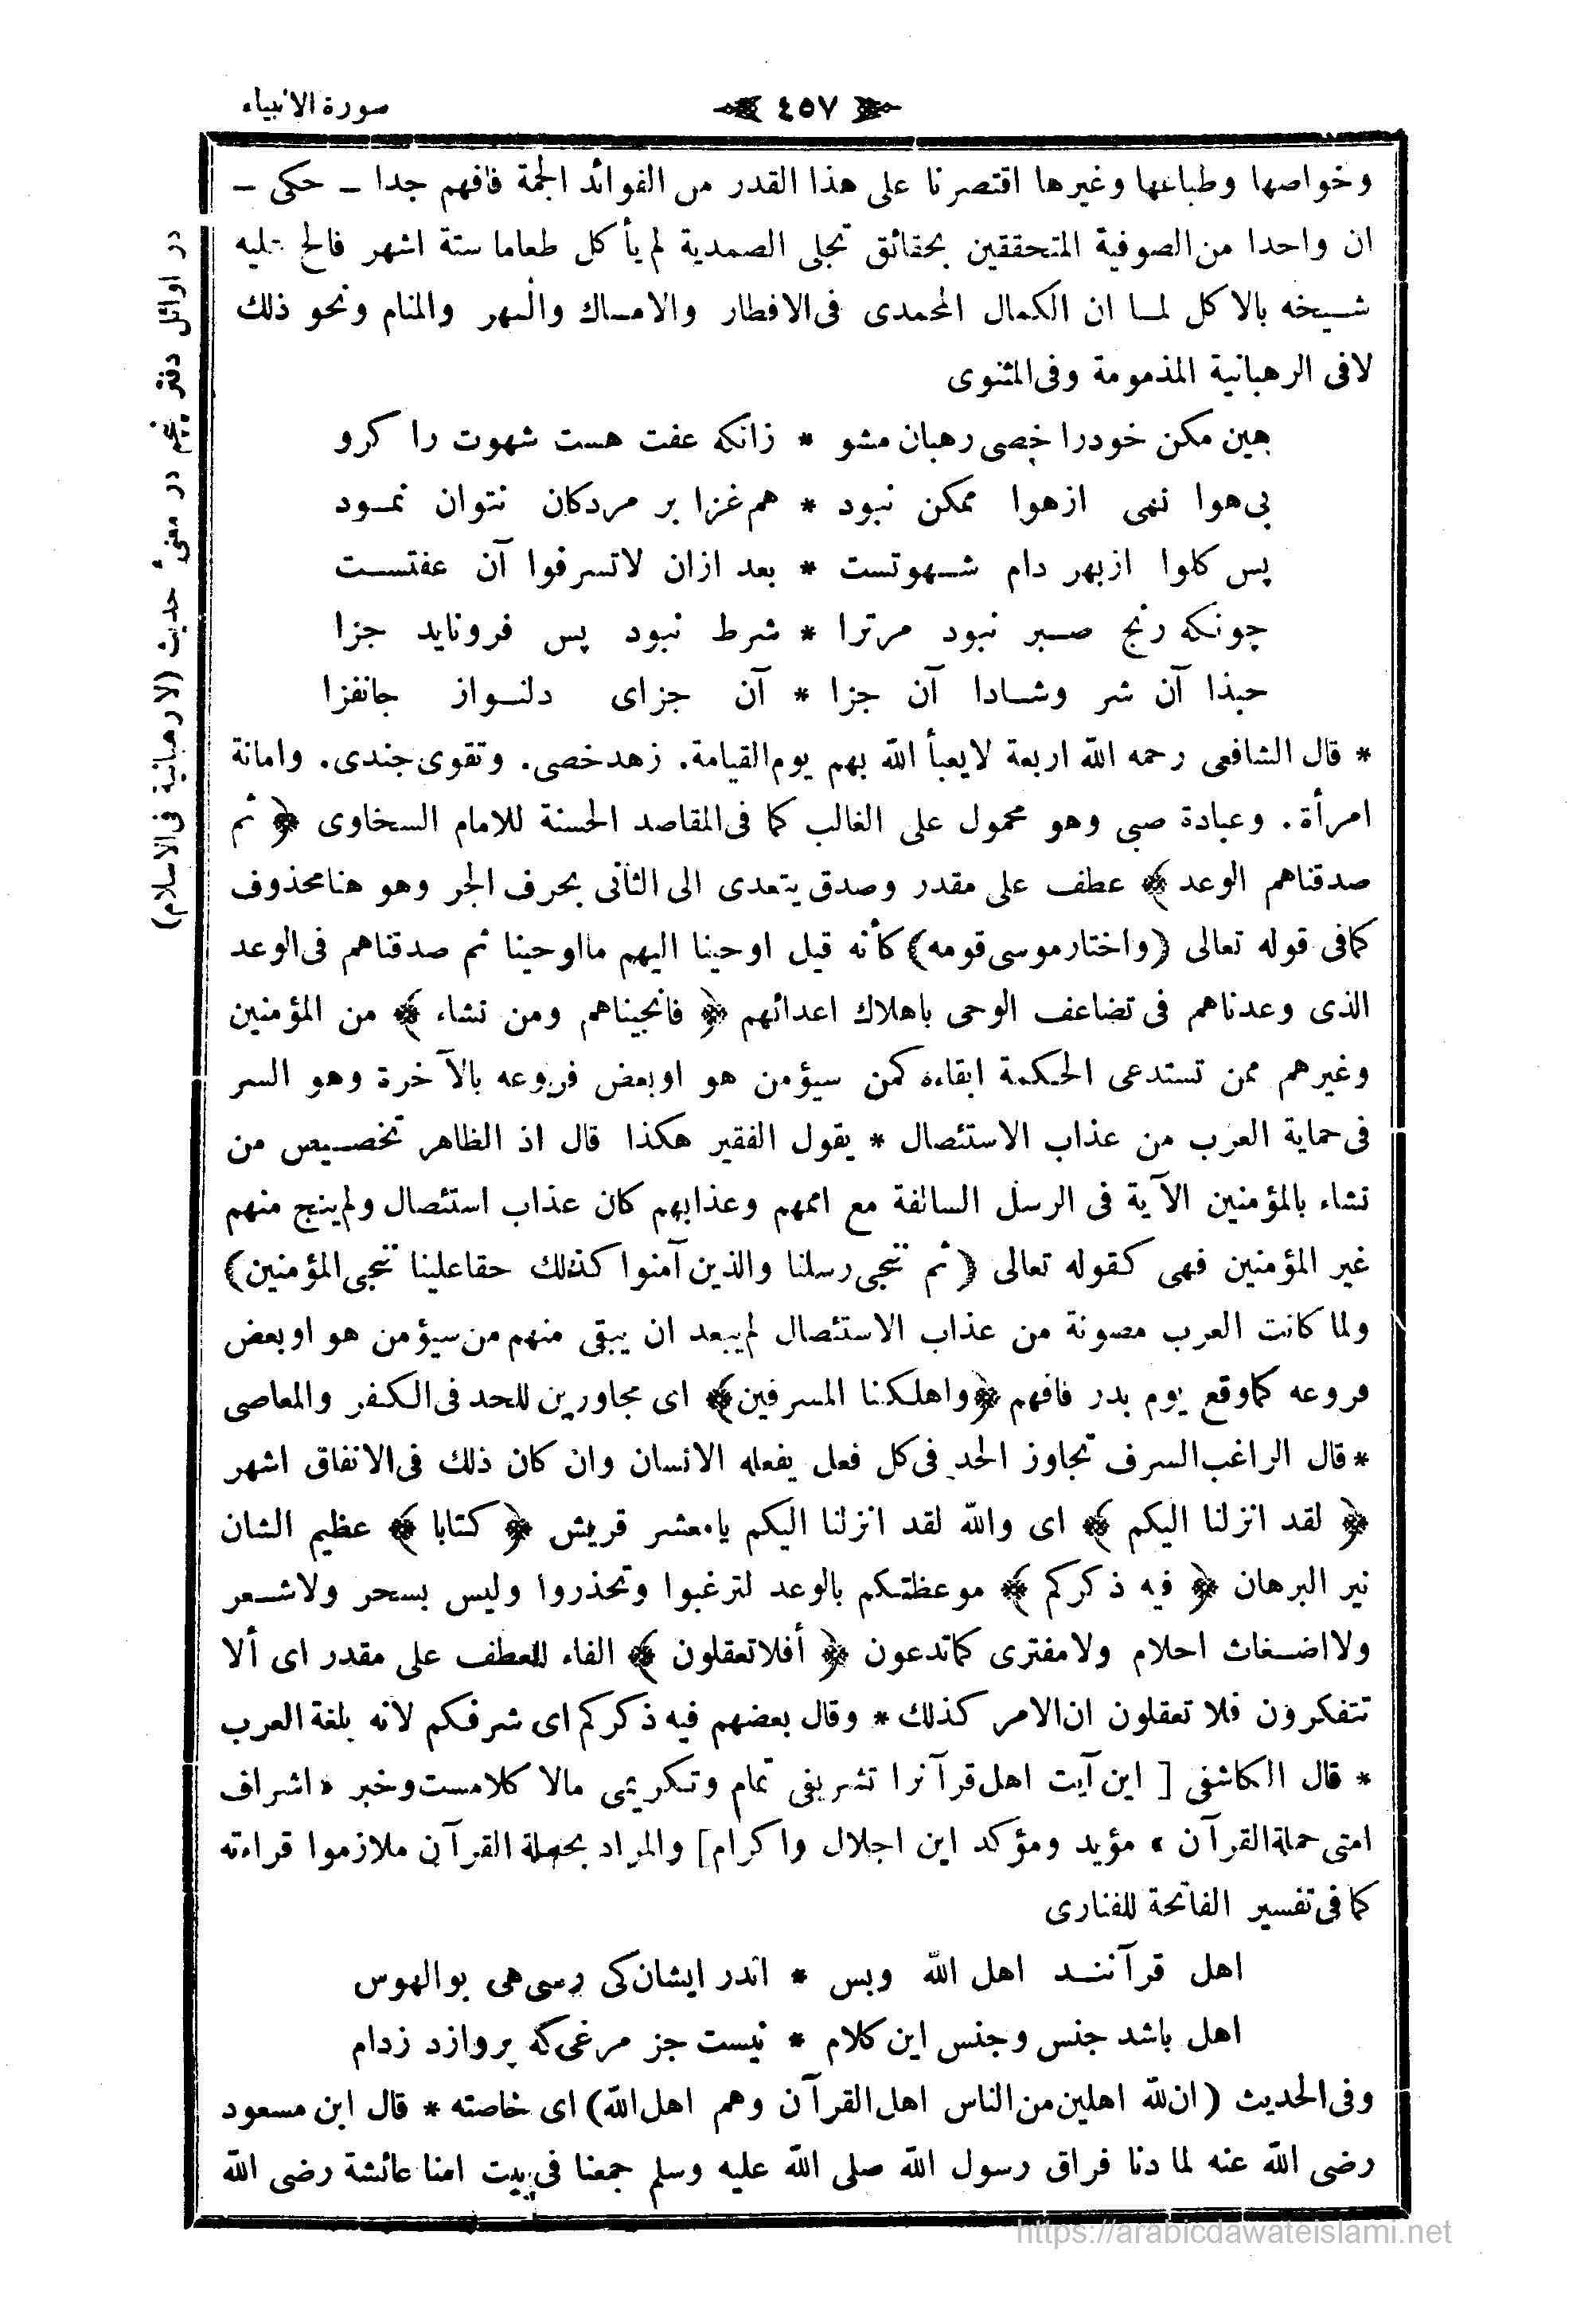 سورة الانبياء
٤٥٧
وخواصها وطباعها وغيرها اقتصرنا على هذا القدر من الفوائد الجمة فافهم جدا ــ حكى ــ
ان واحدا من الصوفية المتحققين بحقائق تجلى الصمدية لم يأكل طعاما ستة اشهر فالح عليه
شيخه بالاكل لما ان الكمال المحمدى فى الافطار والامساك والسهر والمنام ونحو ذلك
لافى الرهبانية المذمومة وفى المثنوى
هين مكن خودرا خصى رهبان مشو * زانكه عفت هست شهوت را كرو
بى هوا نهى ازهوا ممكن نبود * هم غزا بر مردكان نتوان نمود
پس كلوا ازبهر دام شهوتست * بعد ازان لاتسرفوا آن عفتست
چونكه رنج صبر نبود مرترا * شرط نبود پس فرونايد جزا
حبذا آن شر وشادا آن جزا * آن جزاى دلنواز جانفزا
* قال الشافعى رحمه الله اربعة لايعبأ الله بهم يوم القيامة. زهد خصى. وتقوى جندى. وامانة
امرأة. وعبادة صبى وهو محمول على الغالب كما فى المقاصد الحسنة للامام السخاوى ﴿ ثم
صدقناهم الوعد ﴾ عطف على مقدر وصدق يتعدى الى الثانى بحرف الجر وهو هنا محذوف
كمافى قوله تعالى (واختار موسى قومه) كأنه قيل اوحينا اليهم مااوحينا ثم صدقناهم فى الوعد
الذى وعدناهم فى تضاعف الوحى باهلاك اعدائهم ﴿ فانجيناهم ومن نشاء ﴾ من المؤمنين
وغيرهم ممن تستدعى الحكمة ابقاءه كمن سيؤمن هو اوبعض فروعه بالآخرة وهو السر
فى حماية العرب من عذاب الاستئصال * يقول الفقير هكذا قال اذ الظاهر تخصيص من
نشاء بالمؤمنين الآية فى الرسل السالفة مع اممهم وعذابهم كان عذاب استئصال ولم ينج منهم
غير المؤمنين فهى كقوله تعالى (ثم ننجى رسلنا والذين آمنوا كذلك حقا علينا ننجى المؤمنين)
ولما كانت العرب مصونة من عذاب الاستئصال لم يبعد ان يبقى منهم من سيؤمن هو اوبعض
فروعه كماوقع يوم بدر فافهم ﴿واهلكنا المسرفين﴾ اى مجاورين للحد فى الكفر والمعاصى
* قال الراغب السرف تجاوز الحد فى كل فعل يفعله الانسان وان كان ذلك فى الانفاق اشهر
﴿ لقد انزلنا اليكم ﴾ اى والله لقد انزلنا اليكم يامعشر قريش ﴿ كتابا ﴾ عظيم الشان
نير البرهان ﴿ فيه ذكركم ﴾ موعظتكم بالوعد لترغبوا وتحذروا وليس بسحر ولاشعر
ولااضغاث احلام ولامفترى كماتدعون ﴿ أفلاتعقلون ﴾ الفاء للعطف على مقدر اى ألا
تتفكرون فلا تعقلون ان الامر كذلك * وقال بعضهم فيه ذكركم اى شرفكم لانه بلغة العرب
* قال الكاشفى [ اين آيت اهل قرآنرا تشريفى تمام وتكريمى مالا كلامست وخبر « اشراف
امتى حملة القرآن » مؤيد ومؤكد اين اجلال واكرام] والمراد بحملة القرآن ملازموا قراءته
كما فى تفسير الفاتحة للفنارى
اهل قرآنند اهل الله وبس * اندر ايشان كى رسى هى بوالهوس
اهل باشد جنس وجنس اين كلام * نيست جز مرغى كه پروازد زدام
وفى الحديث (ان لله اهلين من الناس اهل القرآن وهم اهل الله) اى خاصته * قال ابن مسعود
رضى الله عنه لما دنا فراق رسول الله صلى الله عليه وسلم جمعنا فى بيت امنا عائشة رضى الله
در اوائل دفتر پنجم در معنىء حديث (لا رهبانية فى الاسلام)
https://arabicdawateislami.net